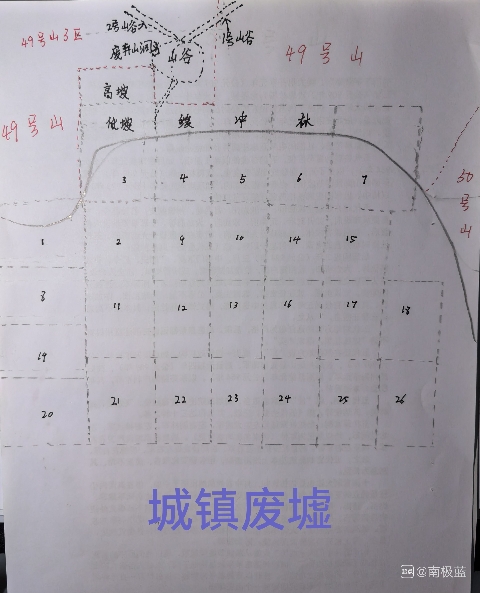 2号山谷
1号山谷
49号山3区
废弃山洞
山谷
49号山
高坡
49号山
低坡 缓 冲 林
3 4 5 6 7
50号山
1 2 9 10 14 15
8 11 12 13 16 17 18
19
20 21 22 23 24 25 26
城镇废墟
@南极蓝